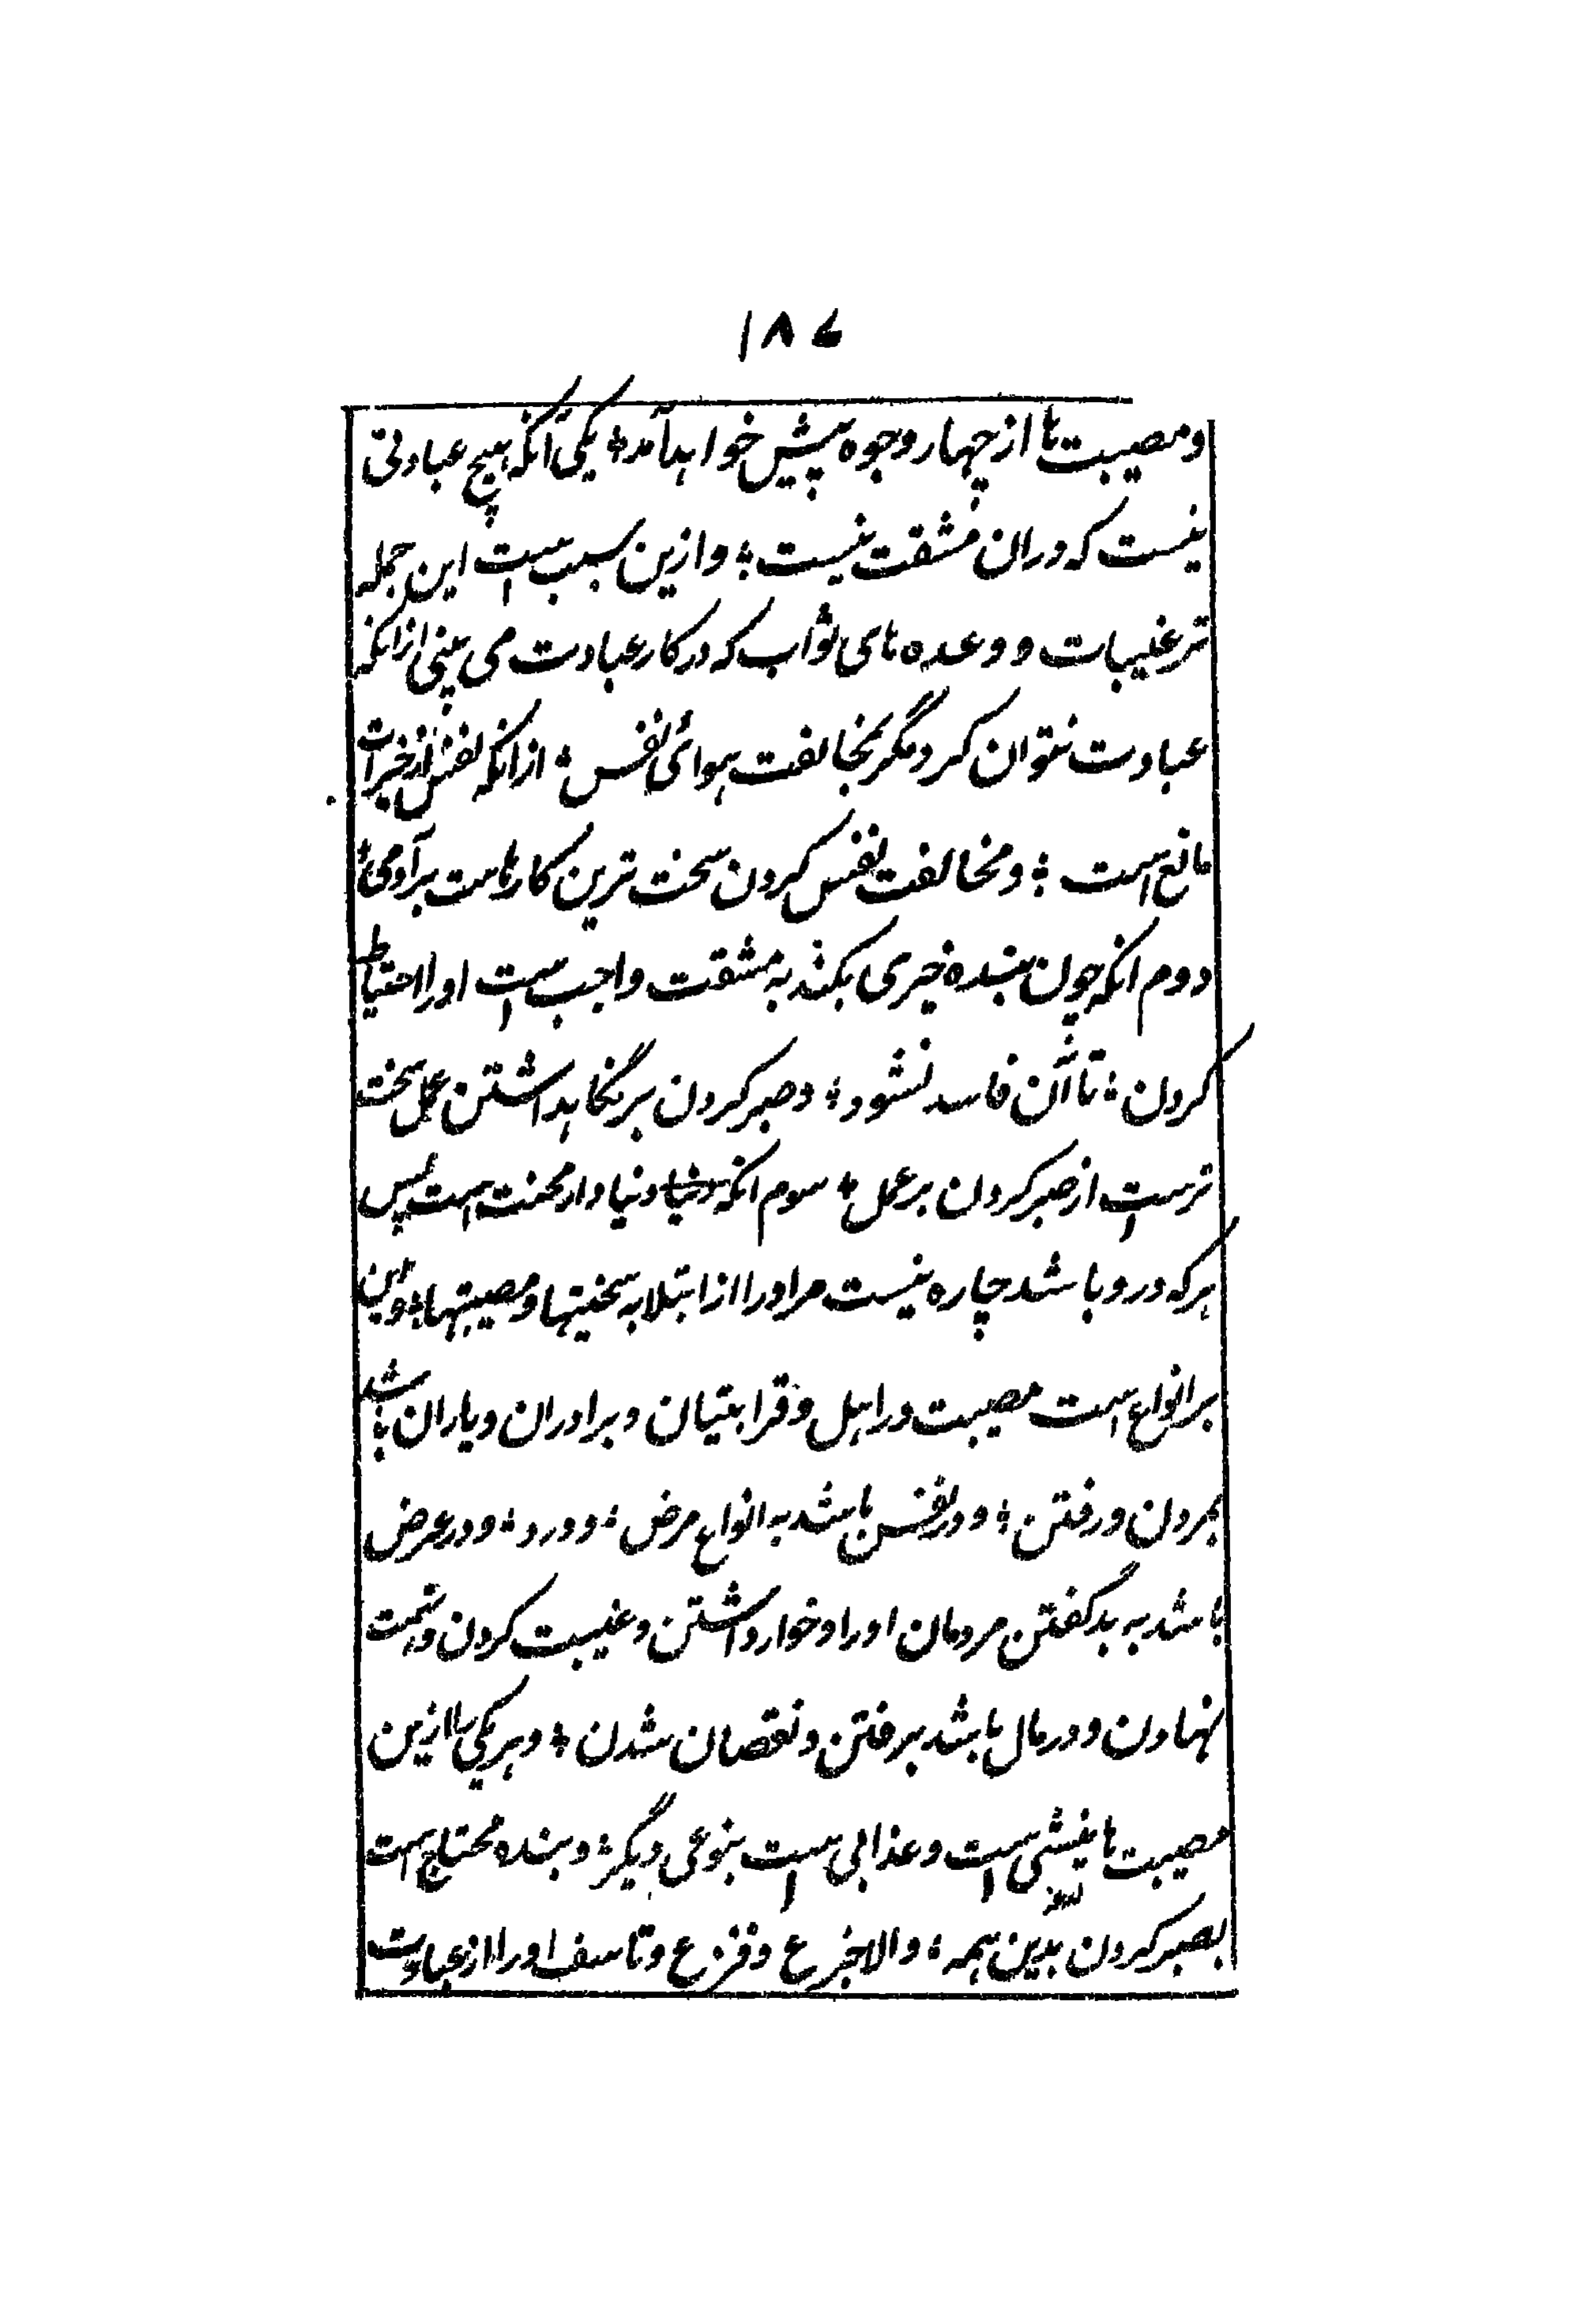 ۱۸۷
ومصیبت ها از چهار وجوه پیش خواهد آمد؛ یکی آنکه هیچ عبادتی
نیست که دران مشقت نیست؛ وازین سبب است این جمله
ترغیبات و وعده های ثواب که در کار عبادت می بینی ازانکه
عبادت نتوان کرد مگر بمخالفت هوائ نفس؛ ازانکه نفس از خیرات
مانع است؛ ومخالفت نفس کردن سخت ترین کارهاست برآدمی
دوم انکه چون بنده خیری بکند به مشقت واجب است اورا احتیاط
کردن؛ تا آن فاسد نشود؛ وصبر کردن برنگاهداشتن عمل سخت
ترست از صبر کردن بر عمل؛ سوم انکه دنیا دار محنت است پس
هرکه درو باشد چاره نیست مراورا از ابتلا به سختیها ومصیبتها؛ واین
بر انواع است مصیبت در اهل وقرابتیان وبرادران ویاران باشد
بمردن ورفتن؛ ودر نفس باشد به انواع مرض؛ ودرد؛ ودر عرض
باشد به بد گفتن مردمان اورا وخوار داشتن وغیبت کردن وتهمت
نهادن ودر مال باشد برفتن ونقصان شدن؛ وهر یکی را ازین
مصیبت ها نیشی است وعذابی است بنوعی دیگر؛ وبنده محتاج است
بصبر کردن بدین همه؛ والا جزع وفزع وتاسف اورا از عبادت